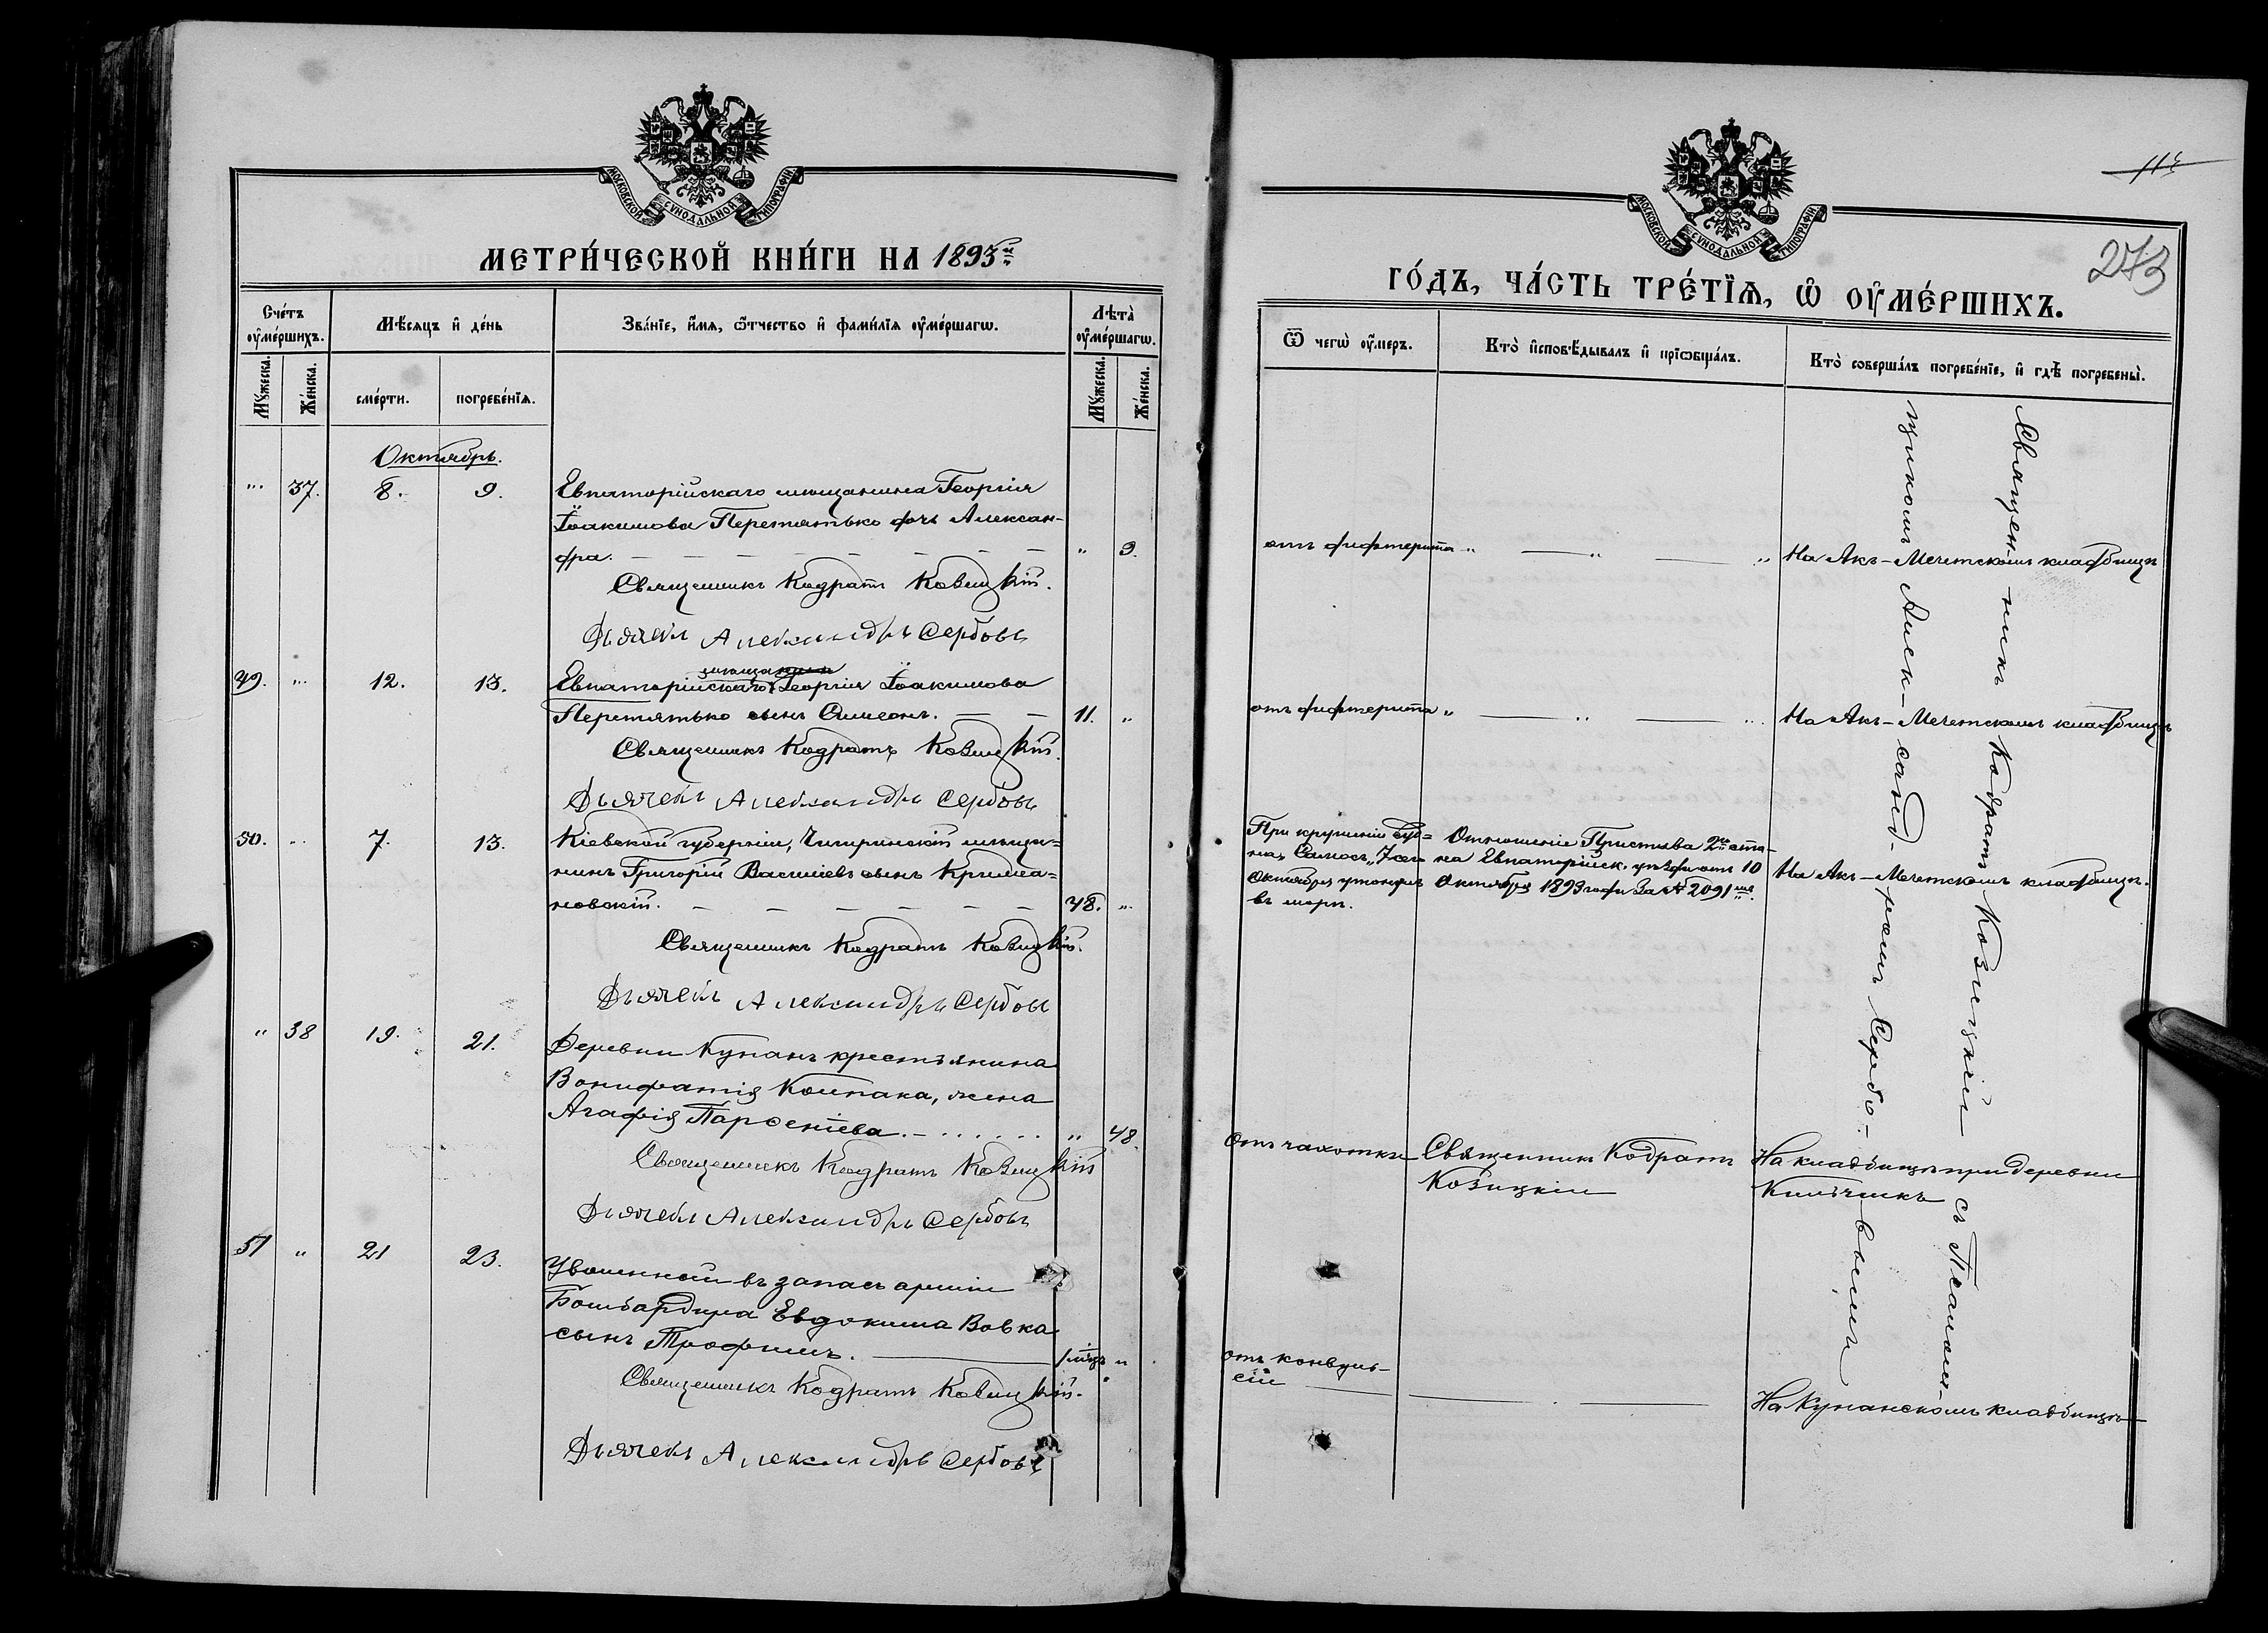 МОСКОВСКОЙ СѴНОДАЛЬНОЙ ТИПОГРАФІИ
МЕТРИ́ЧЕСКОЙ КНИ́ГИ НА 1893й
Сче́тъ ᲂу҆ме́ршихъ.
Мѣ́сяцъ и҆ де́нь
Зва́нїе, и҆́мѧ, ѻ҆́тчество и҆ фами́лїѧ ᲂу҆ме́ршагѡ.
Лѣ̑та̀ ᲂу҆ме́ршагѡ.
Мꙋ́жеска.
Же́нска.
сме́рти.
погребе́нїѧ.
Мꙋ́жеска.
Же́нска.
Октябрь.
" 37. 8. 9. Евпаторійскаго мѣщанина Георгія
Іоакимова Перетятько дочь Алексан-
дра. — — — — — — — " 9.
Священникъ Кодратъ Козицкій.
Дьячекъ Александръ Сербовъ
49. " 12. 13.
мѣщанина
Евпаторійскаго Георгія Іоакимова
Перетятько сынъ Симеонъ. — — 11. "
Священникъ Кодратъ Козицкій.
Дьячекъ Александръ Сербовъ
50. " 7. 13. Кіевской губерніи, Чигиринскій мѣща=
нинъ Григорій Васильевъ сынъ
новскій. — — — — — — 48. "
Священникъ Кодратъ Козицкій.
Дьячекъ Александръ Сербовъ
" 38 19. 21. Деревни Кунанъ крестьянина
Вонифатія Колпака, жена
Агафія Парѳеніева. " 48.
Священникъ Кодратъ Козицкій
Дьячекъ Александръ Сербовъ
51 " 21 23. Уволенной въ запасъ арміи
Бомбардира Евдокима Вовка
сынъ Трофимъ. — 1 мѣц. "
Священникъ Кодратъ Козицкій.
Дьячекъ Александръ Сербовъ
МОСКОВСКОЙ СѴНОДАЛЬНОЙ ТИПОГРАФІИ
273
ГО́ДЪ, ЧА́СТЬ ТРЕ́ТЇѦ, Ѡ҆ ОУ҆МЕ́РШИХЪ.
Ѿ чегѡ̀ ᲂу҆́меръ.
Кто̀ и҆сповѣ́дывалъ и҆ прїѡбща́лъ.
Кто̀ соверша́лъ погребе́нїе, и҆ гдѣ̀ погребены̀.
отъ дифтерита " — " — " На Акъ-Мечетскомъ кладбищѣ
отъ дифтерита " — " — " На Акъ-Мечетскомъ кладбищѣ
При крушеніи суд=
на, Самосъ, 7го
Октября утонулъ
въ морѣ.
Отношеніе Пристава 2го ста-
на Евпаторійск. уѣзда отъ 10
Октября 1893 года за № 2091мъ.
На Акъ-Мечетскомъ кладбищѣ.
Отъ чахотки
Священникъ Кодратъ
Козицкій
На кладбищѣ при деревни
Кипчакъ
отъ конвуль-
сіи — — —
На Кунанскомъ кладбищѣ
Священ- никъ Кодратъ Козицкій съ Псалом-
щикомъ Алек- санд- ромъ Сербо- вымъ